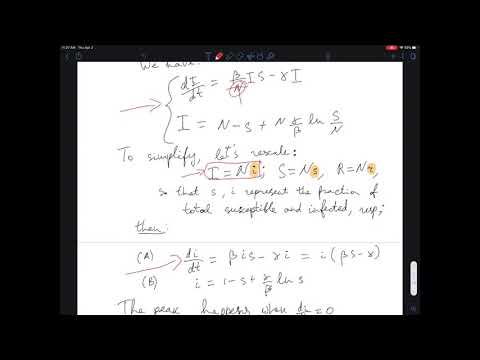 11:21 AM Thu Apr 2
We have:
dI/dt = β/N IS - γI
I = N - S + N γ/β ln S/N
To simplify, let's rescale:
I = N i; S = N s, R = N r,
so that s, i represent the fraction of
total susceptible and infected, resp;
then:
(A) di/dt = β i s - γ i = i (β s - γ)
(B) i = 1 - s + γ/β ln s
The peak happens when di/dt = 0